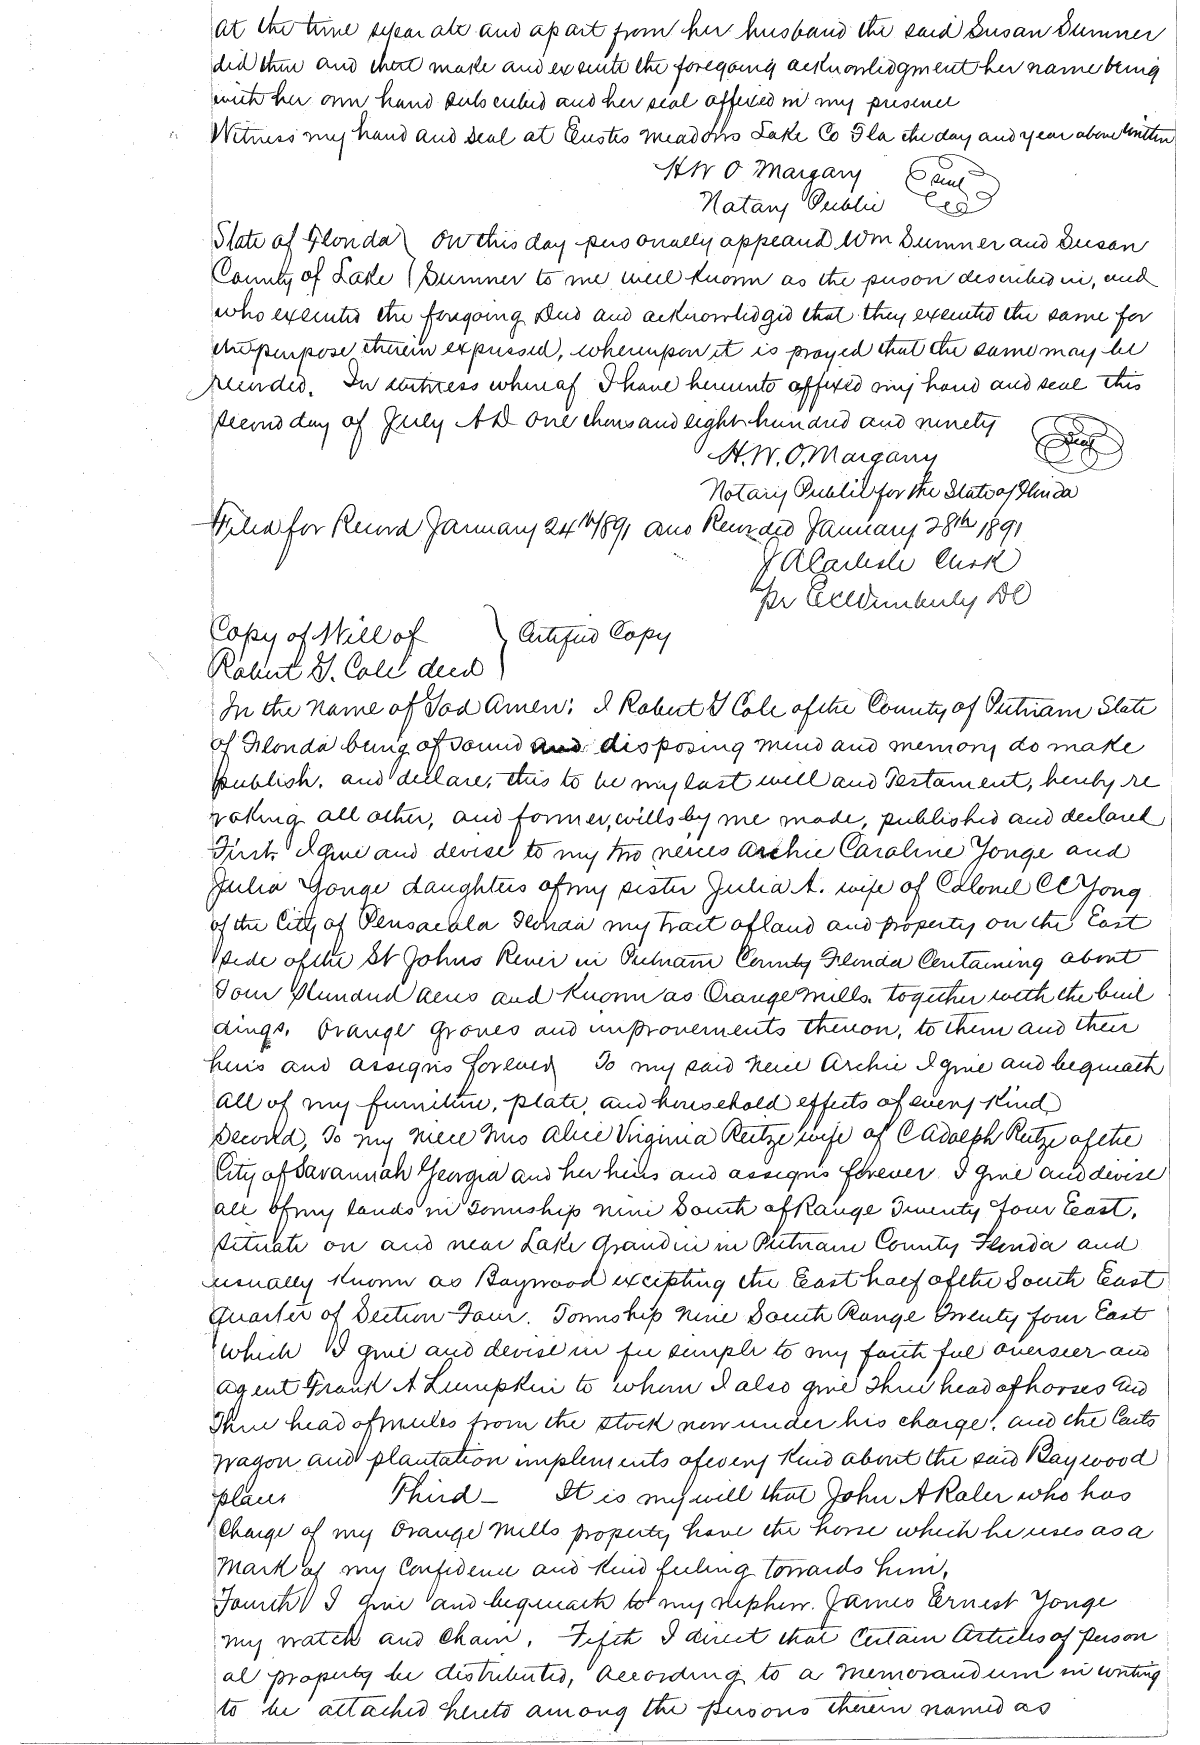 at the time separate and apart from her husband the said Susan Sumner
did then and there make and execute the foregoing acknowledgment her name being
with her own hand subscribed and her seal affixed in my presence
Witness my hand and seal at Eustis Meadows Lake Co Fla the day and year above written
H W O Margary
seal
Notary Public
State of Florida } On this day personally appeared Wm Sumner and Susan
County of Lake } Sumner to me well known as the person described in, and
who executed the foregoing Deed and acknowledged that they executed the same for
the purpose therein expressed, whereupon it is prayed that the same may be
recorded. In witness whereof I have hereunto affixed my hand and seal this
second day of July AD one thousand eight hundred and ninety
H. W. O. Margary
Seal
Notary Public for the State of Florida
Filed for Record January 24th 1891 and Recorded January 28th 1891
J A Carlisle Clerk
pr Wimberly DC
Copy of Will of } Certified Copy
Robert G. Cole decd
In the name of God Amen: I Robert G Cole of the County of Putnam State
of Florida being of sound and disposing mind and memory do make
publish, and declare, this to be my last will and Testament, hereby re
voking all other, and former, wills by me made, published and declared
First, I give and devise to my two neices Archie Caroline Yonge and
Julia Yonge daughters of my sister Julia A. wife of Colonel C C Yong
of the City of Pensacola Florida my tract of land and property on the East
side of the St Johns River in Putnam County Florida Containing about
Four Hundred acres and known as Orange Mills, together with the buil
dings, Orange Groves and improvements thereon, to them and their
heirs and assigns forever To my said neice Archie I give and bequeath
all of my furniture, plate, and household effects of every kind
Second, To my niece Mrs Alice Virginia Reitze wife of C Adolph Reitze of the
City of Savannah Georgia and her heirs and assigns forever I give and devise
all of my lands in Township nine South of Range Twenty four East,
situate on and near Lake Grandin in Putnam County Florida and
usually known as Baywood excepting the East half of the South East
quarter of Section Four. Township nine South Range Twenty four East
which I give and devise in fee simple to my faithful overseer and
agent Frank A Lumpkin to whom I also give Three head of horses and
Three head of mules from the stock now under his charge, and the Carts
wagon and plantation implements of every kind about the said Baywood
place Third - It is my will that John A Raler who has
charge of my Orange Mills property have the horse which he uses as a
mark of my confidence and kind feeling towards him,
Fourth I give and bequeath to my nephew James Ernest Yonge
my watch and chain. Fifth I direct that Certain Articles of person
al property be distributed, according to a memorandum in writing
to be attached hereto among the persons therein named as